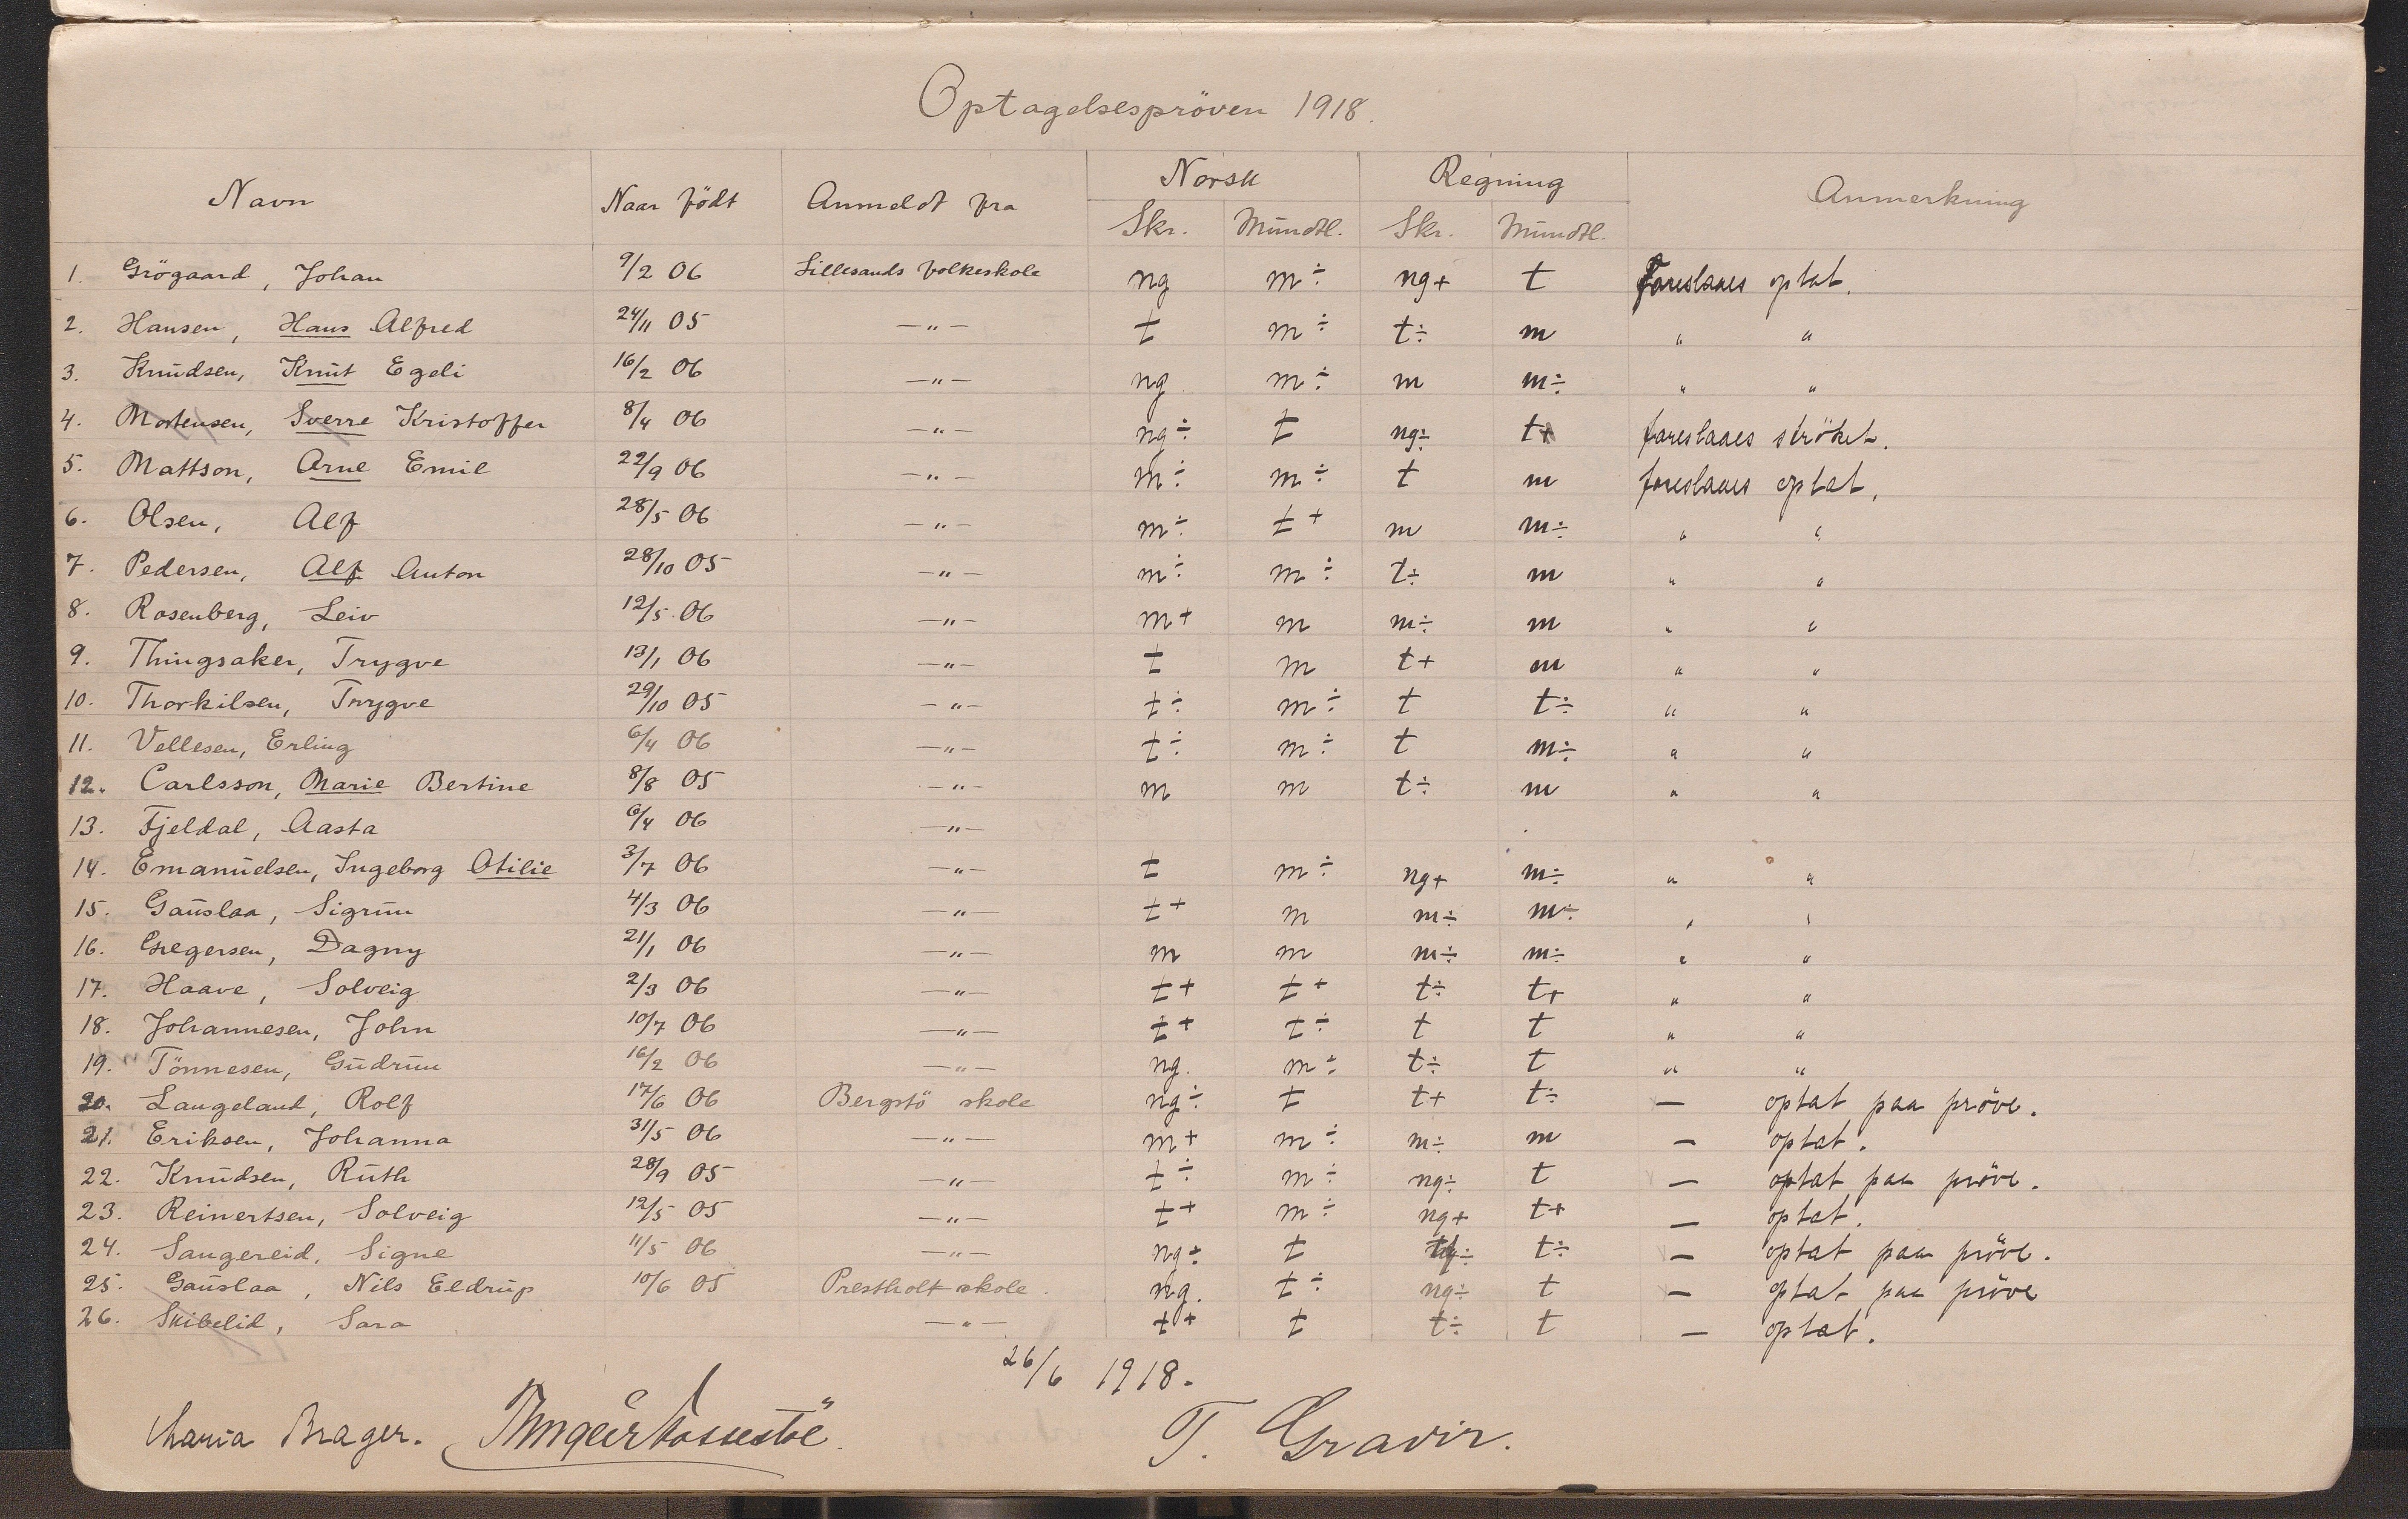 Optagelsespröven 1918.
Navn Naar födt Anmeldt fra Norsk Regning Anmerkning
Skr. Mundtl. Skr. Mundtl.
1. Grögaard, Johan 9/2 06 Lillesands folkeskole ng m÷ ng+ t Foreslaaes optat.
2. Hansen, Hans Alfred 24/11 05 —"— t m÷ t÷ m " "
3. Knudsen, Knut Egeli 16/2 06 —"— ng m÷ m m÷ " "
4. Mortensen, Sverre Kristoffer 8/4 06 —"— ng÷ t ng÷ t+ foreslaaes ströket.
5. Mattson, Arne Emil 22/9 06 —"— m÷ m÷ t m foreslaaes optat.
6. Olsen, Alf 28/5 06 —"— m÷ t+ m m÷ " "
7. Pedersen, Alf Anton 28/10 05 —"— m÷ m÷ t÷ m " "
8. Rosenberg, Leiv 12/5 06 —"— m+ m m÷ m " "
9. Thingsaker, Trygve 13/1 06 —"— t m t+ m " "
10. Thorkilsen, Trygve 29/10 05 —"— t÷ m÷ t t÷ " "
11. Vellesen, Erling 6/4 06 —"— t÷ m÷ t m÷ " "
12. Carlsson, Marie Bertine 8/8 05 —"— m m t÷ m " "
13. Fjeldal, Aasta 6/4 06 —"—
14. Emanuelsen, Ingeborg Otilie 3/7 06 —"— t m÷ ng+ m÷ " "
15. Gauslaa, Sigrun 4/3 06 —"— t+ m m÷ m÷ " "
16. Gregersen, Dagny 21/1 06 —"— m m m÷ m÷ " "
17. Haave, Solveig 2/3 06 —"— t+ t+ t÷ t+ " "
18. Johannesen, John 10/7 06 —"— t+ t÷ t t " "
19. Tönnesen, Gudrun 16/2 06 —"— ng. m÷ t÷ t " "
20. Langeland, Rolf 17/6 06 Bergstö skole ng÷ t t+ t÷ — optat paa pröve.
21. Eriksen, Johanna 31/5 06 —"— m+ m÷ m÷ m — optat.
22. Knudsen, Ruth 28/9 05 —"— t÷ m÷ ng÷ t — optat paa pröve.
23. Reinertsen, Solveig 12/5 05 —"— t+ m÷ ng+ t+ — optat.
24. Sangereid, Signe 11/5 06 —"— ng÷ t t÷ — optat paa pröve.
25. Gauslaa, Nils Eldrup 10/6 05 Prestholt skole. ng. t÷ ng÷ t — optat paa pröve
26. Skibelid, Sara —"— t+ t t÷ t — optat.
26/6 1918.
Maria Brager. T. Gravir.